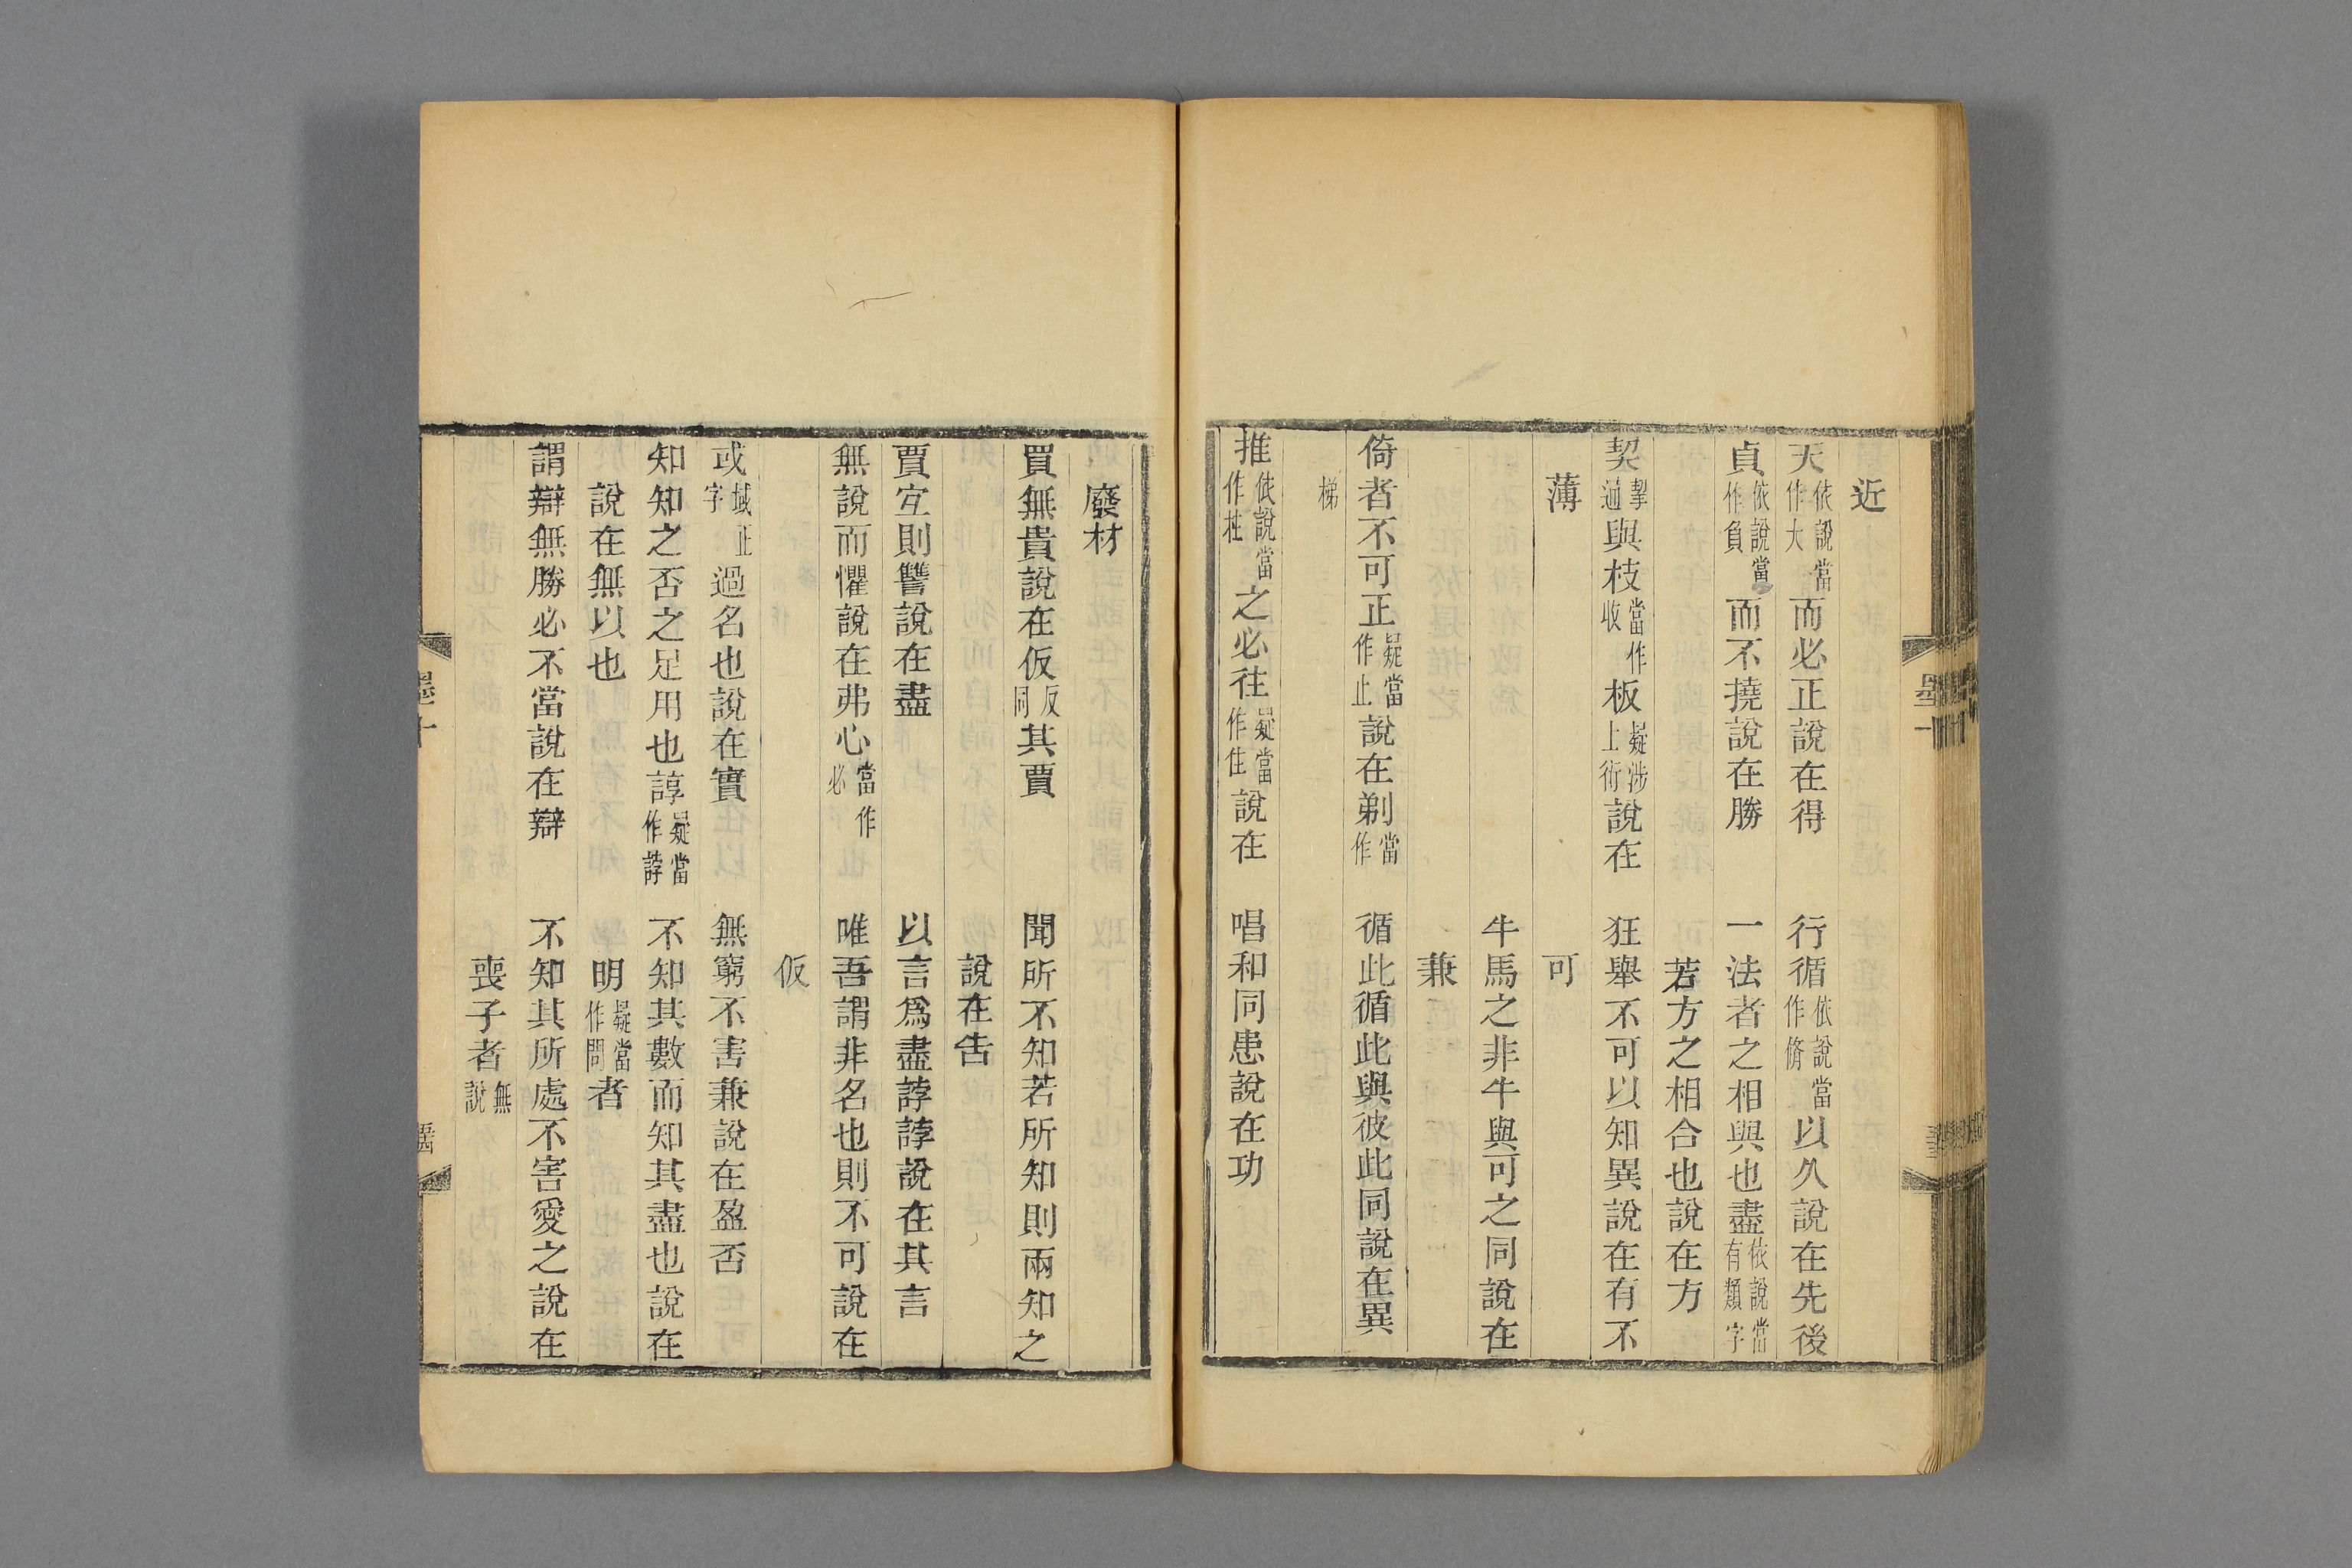 近
天依說當作大而必正說在得　行循依說當作脩以久說在先後
貞依說當作負而不撓說在勝　一法者之相與也盡依說當有類字
若方之相合也說在方
契挈通與枝當作收板疑涉上衍說在　狂舉不可以知異說在有不
薄　可
牛馬之非牛與可之同說在
兼
倚者不可正疑當作止說在剃當作　循此循此與彼此同說在異
梯
推依說當作柱之必往疑當作住說在　唱和同患說在功
廢材
買無貴說在仮反同其賈　聞所不知若所知則兩知之
說在告
賈宜則讐說在盡　以言爲盡誖誖說在其言
無說而懼說在弗心當作必　唯吾謂非名也則不可說在
仮
或域正字過名也說在實　無窮不害兼說在盈否
知知之否之足用也諄疑當作誖　不知其數而知其盡也說在
說在無以也　明疑當作問者
謂辯無勝必不當說在辯　不知其所處不害愛之說在
喪子者無說